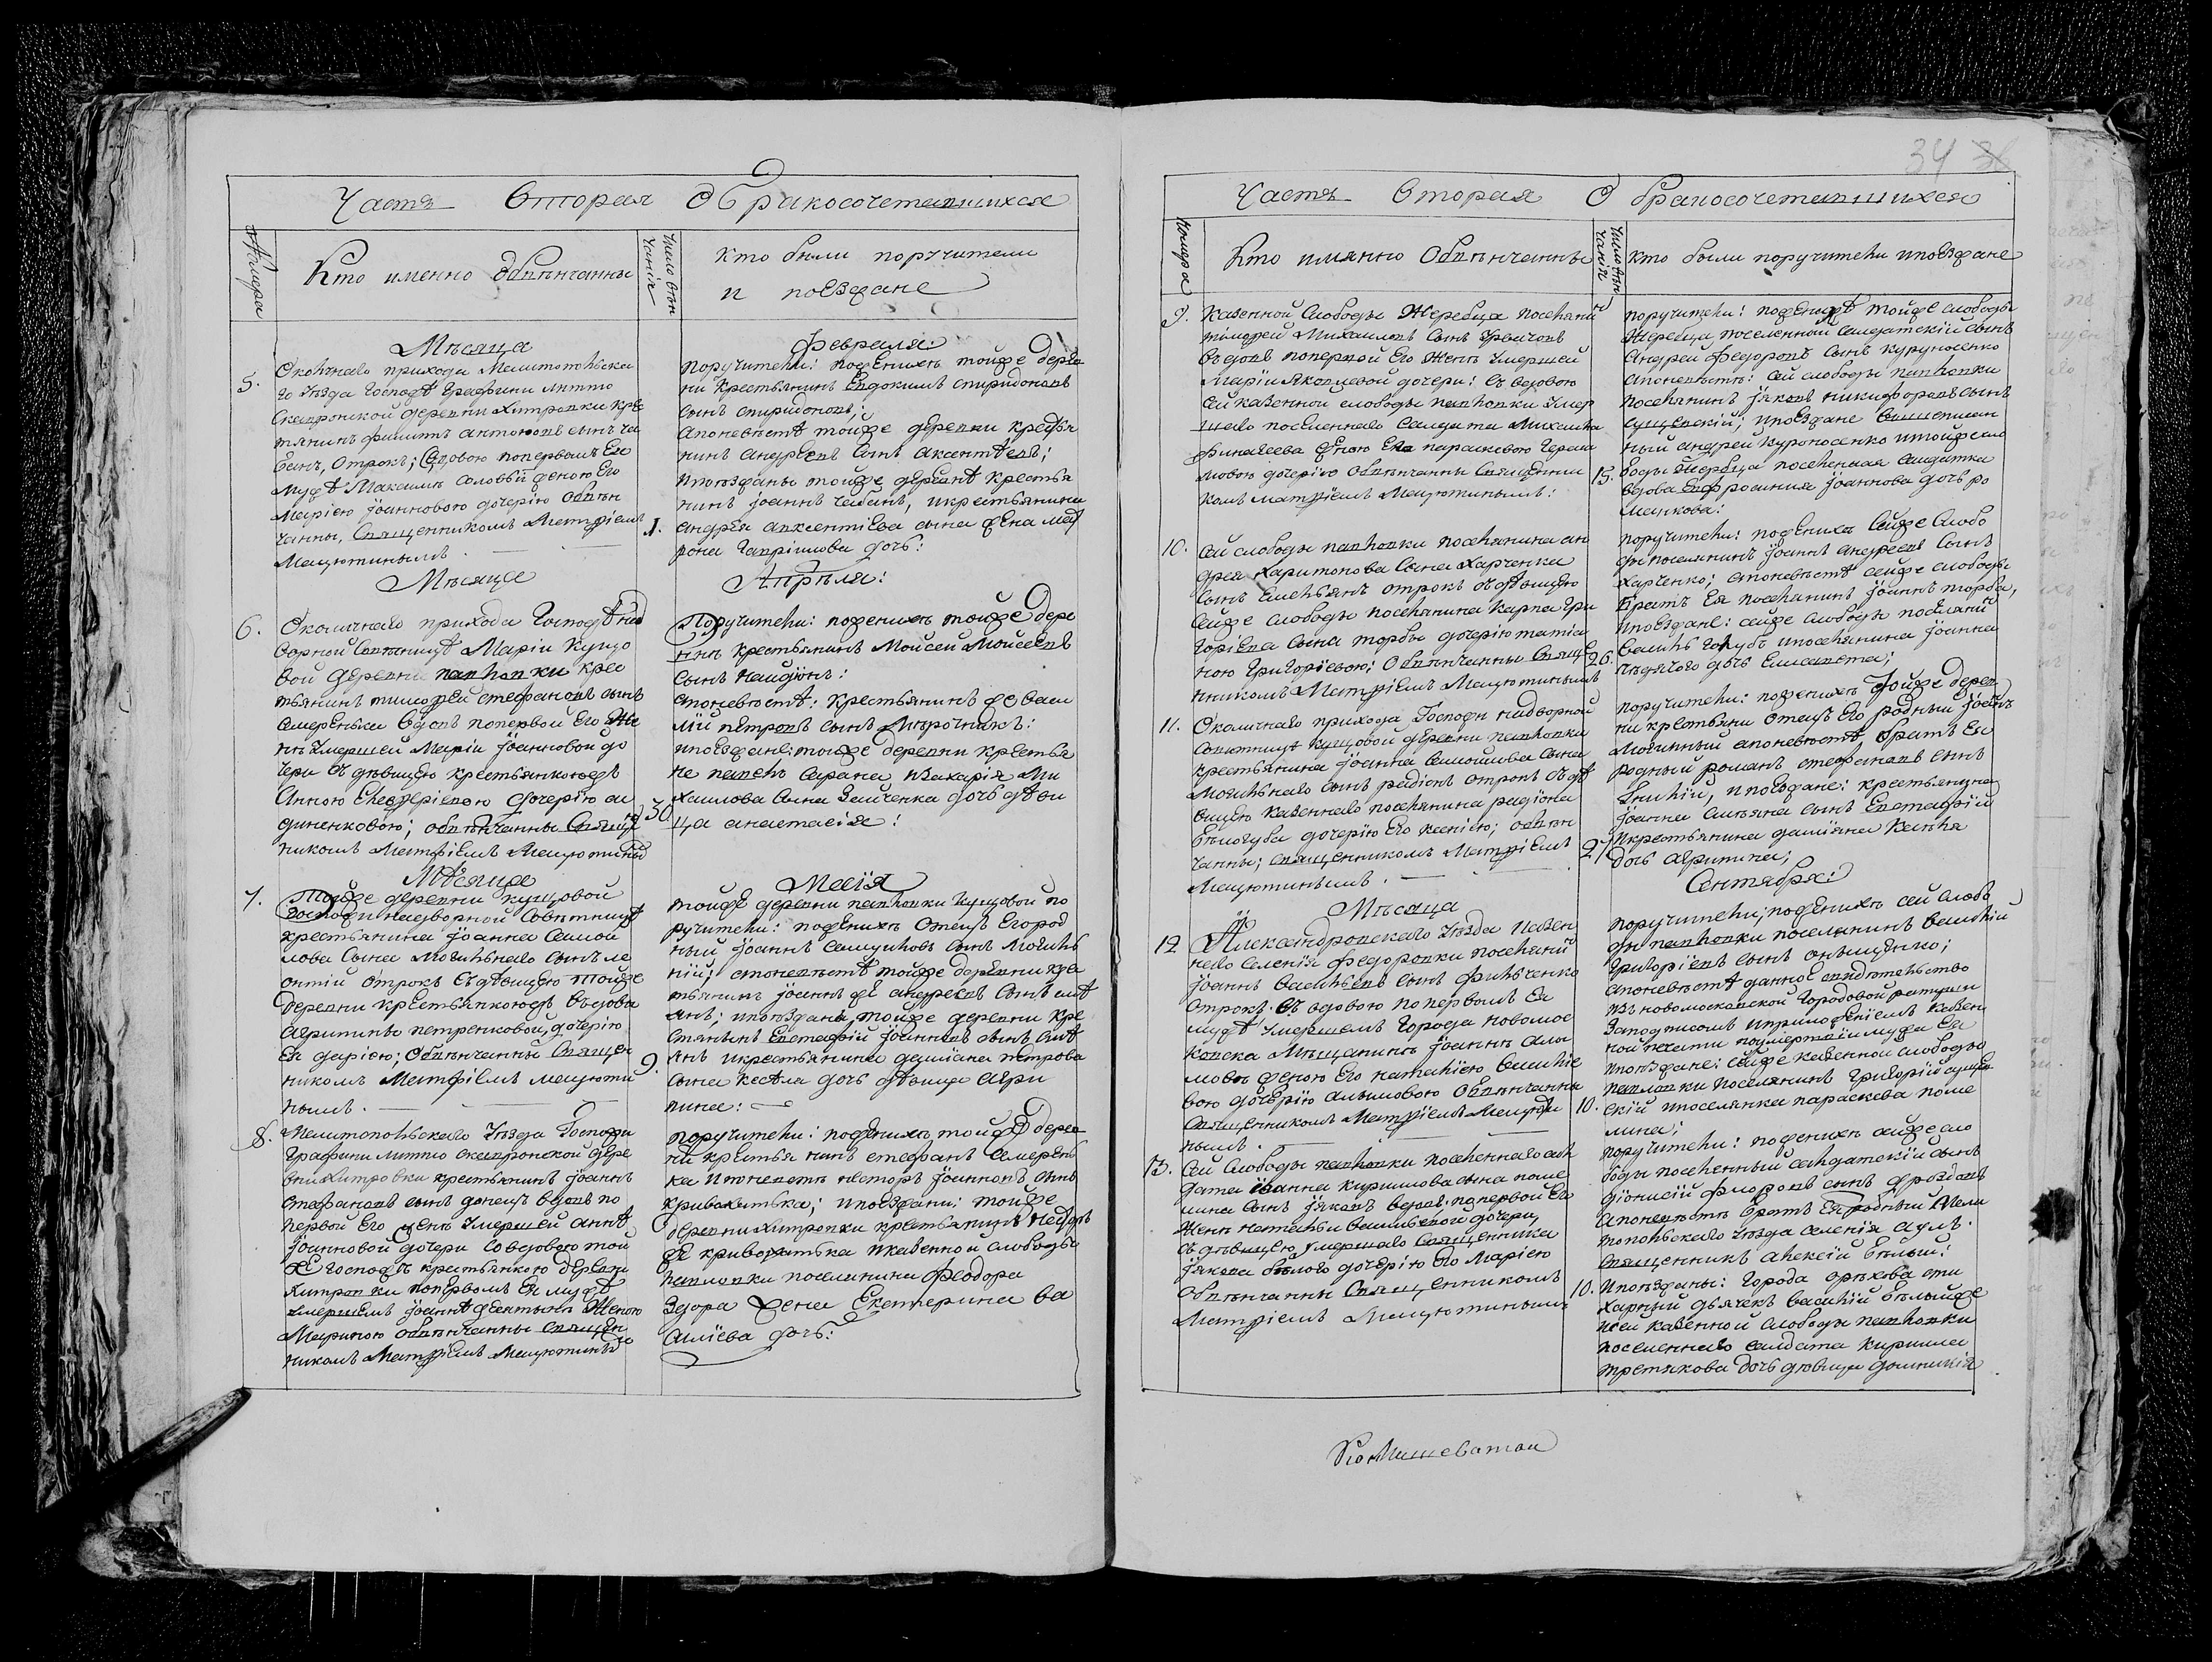 34
Часть Вторая О Бракосочетавшихся
Номера
Кто именно Обвѣнчанны
число вѣн
чанія
кто были поручители
и поѣзжане
Мѣсяца
Февраля:
5.
Околичнаго прихода Мелитопольска
го уѣзда Господъ Графини Литто
Скавронской деревни Хитровки кре
тьянинъ филиппъ антоновъ сынъ ча
банъ, отрокъ; Съ вдовою попервомъ Ея
мужѣ Максимѣ Соловьи женою Его
Маріею Іоанновою дочерію обвѣн
чанны, Священникомъ Матвѣемъ
Мацютинымъ.
1.
поручители: поженихѣ тойже дерев
ни крестьянинъ Евдокимъ спиридоновъ
сынъ спиридоновъ;
апоневѣстѣ тойже деревни крестья
нинъ андрѣевъ сынъ аксентѣевъ;
Ипоѣзжаны тойже деревнѣ крестья
нинъ Іоаннъ чабанъ, икрестьянина
андрѣя авксентіева сына жена мат
рона Гаврілова дочь:
Мѣсяца
Апрѣля:
6.
Околичнаго прихода Господѣ над
ворной Совѣтницѣ Маріи Куцо
вой деревни павловки крес
тьянинъ тимоѳей стефановъ сынъ
Смереньки вдовъ попервой Его Же
нѣ умершей Маріи Іоанновой до
чери съ дѣвицею крестьянкоюжъ
Анною Елевѳеріевою дочерію си
диненковою; обвѣнчанны Свяще
никомъ Матвѣемъ Мацютины
30
Поручители: поженихѣ тойже дере
вни крестьянинъ Мойсей Мойсеевъ
сынъ Найдюнъ:
апоневѣстѣ: крестьянинъ же васи
лій петровъ сынъ Мирочникъ:
ипоѣзжане: тойже деревни крестья
не павелъ Сарана изахарія Ми
хаилова сына Заиченка дочь дѣви
ца анастасія:
Мѣсяца
Маія
7.
Тойже деревни куцовой
госпожи надворной Совѣтницѣ
крестьянина Іоанна Самой
лова сына Могильнаго сынъ ле
онтій отрокъ съ дѣвицею тойже
деревни крестьянкоюжъ вдовы
агрипины петренковой, дочерію
Ея даріею; Обвѣнчанны Священ
никомъ Матвѣемъ мацюти
нымъ.
9.
тойже деревни павловки куцовой по
ручители: поженихѣ отецъ Егород
ный Іоаннъ самуиловъ сынъ Могиль
ній; апоневѣстѣ тойже деревни кре
стьянинъ Іоаннъ же андреевъ сынъ сит
янъ; ипоѣзжаны тойже деревни кре
стьянинъ Евстафій Іоанновъ сынъ сит
янъ икрестьянина даміана петрова
сына кесѣля дочь дѣвица агри
пина:
8.
Мелитопольскаго уѣзда Госпожи
Графини литто скавронской дере
вни хитровки крестьянинъ Іоаннъ
Стефановъ сынъ донецъ вдовъ по
первой Его женѣ умершей аннѣ
Іоанновой дочери совдовою той
же Господъ крестьянкою деревни
Хитровки попервомъ Ея мужѣ
умершемъ Іоаннѣ Женою
Мариною обвѣнчанны Священ
никомъ Матвѣемъ Мацютины
поручители: поженихѣ тойже дерев
ни крестьянинъ стефанъ Смерень
ка ипоневѣстѣ несторъ Іоанновъ сынъ
кривохатька; ипоѣзжани: тойже
деревни хитровки крестьянинъ Несторъ
же кривохатька иказенной слободы
павловки поселянина феодора
Здора жена Екатерина ва
силіева дочь:
Часть Вторая О бракосочетавшихся
Номера
Кто имянно Обвѣнчанны
число вѣн
чанія
Кто были поручители ипоѣзжане
9.
Казенной Слободы Жеребца поселянин
тимоѳей Михаиловъ сынъ
вдовъ попервой Его женѣ умершей
Маріи Яковлевой дочери: съ вдовою
сей казенной слободы павловки умер
шаго поселеннаго салдата Михаила
Финагеева женою Его параскевою Гераси
мовою дочерію обвѣнчанны Священни
комъ матвѣемъ Мацютинымъ:
15.
поручители: поженихѣ тойже слободы
Жеребца поселенной салдатскій сынъ
андрей федоровъ сынъ куруносенко
апоневѣстѣ: сей слободы павловки
поселянинъ Іаковъ никифоровъ сынъ
сущевскій; ипоѣзжане вышеписан
ный андрей куроносенко итойже сло
боды Жеребца поселенная салдатка
вдова Евфросинія Іоаннова дочь ро
машкова:
10.
Сей слободы павловки поселянина ан
дрея Харитонова сына Харченка
сынъ Емельянъ отрокъ съ дѣвицею
сейже слободы поселянина Карпа Гри
горіева сына торбы дочерію татіа
ною Григоріевою; Обвѣнчанны Священ
нникомъ Матвѣемъ Мацютинымъ
26.
поручители: поженихѣ сейже Слобо
ды поселянинъ Іоаннъ андреевъ Сынъ
Харченко; апоневѣстѣ сейже слободы
братъ Ея поселянинъ Іоаннъ торба,
ипоѣзжане: сейже слободы поселяни
василь Голубъ ипоселянина Іоанна
дочь Елисавета;
11.
Околичнаго прихода Госпожи надворной
Совѣтницѣ куцовой деревни павловки
крестьянина Іоанна Самойлова сына
Могильнаго сынъ родіонъ отрокъ съ дѣ
вицею казеннаго поселянина радіона
бѣлогуба дочерію его ксеніею; обвѣн
чанны; священникомъ Матвѣемъ
Мацютинымъ.
27
поручители: поженихѣ тойже дерев
ни крестьяни отецъ Его родный Іоаннъ
Могильный апоневѣстѣ братъ Ея
родный романъ стефановъ сынъ
ипоѣзжане: крестьянина
Іоанна ситьяна сынъ Евстафій
икрестьянина даміяна Кисѣля
дочь агрипина;
Мѣсяца
Сентября:
12
Александровскаго уѣзда Казен
наго селенія федоровки поселянин
Іоаннъ васильевъ сынъ Фильченко
отрокъ. съ вдовою попервомъ Ея
мужѣ умершемъ Города новомос
ковска Мѣщанинѣ Іоаннѣ алы
мовѣ женою Его наталіею василіе
вою дочерію алымовою Обвѣнчанны
Священникомъ Матвѣемъ Мацюти
нымъ.
10.
поручители; поженихѣ сей слобо
ды павловки поселянинъ василій
Григоріевъ сынъ онищенко;
апоневѣстѣ данное свидѣтельство
изъ новомосковской городовой ратуши
заподписомъ иприложеніемъ казен
ной печати посмертіи мужа Ея
ипоѣзжане: сейже казенной слободы
павловки поселянинъ Григорій сущев
скій ипоселянка параскева поме
лина;
13.
Сей Слободы павловки поселеннаго сал
дата іванна кирилова сына поме
лина сынъ Іяковъ вдовъ. попервой Его
женѣ натальи васильевой дочери,
съ дѣвицею умершаго Священника
Іякова бѣлого дочерію Его Маріею
Обвѣнчанны Священникомъ
Матвѣемъ Мацютинымъ
10.
поручители: поженихѣ сейже сло
боды поселенный салдатскій сынъ
діонисій фіоровъ сынъ дроздовъ
апоневѣстѣ братъ Ея родный Мели
топольскаго уѣзда селенія аулъ.
Священникъ алексій бѣлый:
Ипоѣзжаны: города орѣхова сти
харный дьячекъ василій бѣлыйже
исей казенной слободы павловки
поселеннаго салдата Кирилла
третякова дочь дѣвица домникія